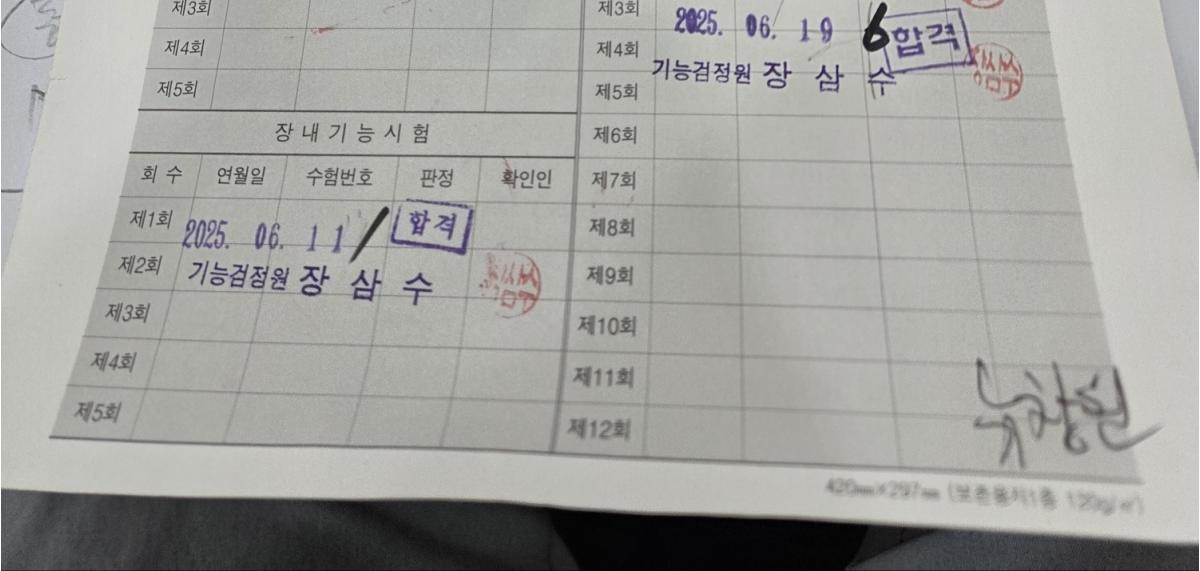 제3회
제4회
제5회
장내기능시험
회수 연월일 수험번호 판정 확인인
제1회 2025. 06. 11 / 합격
제2회 기능검정원 장삼수
제3회
제4회
제5회
제3회 2025. 06. 19 6 합격
제4회
제5회 기능검정원 장삼수
제6회
제7회
제8회
제9회
제10회
제11회
제12회
420㎜×297㎜ (보존용지1종 120g/㎡)